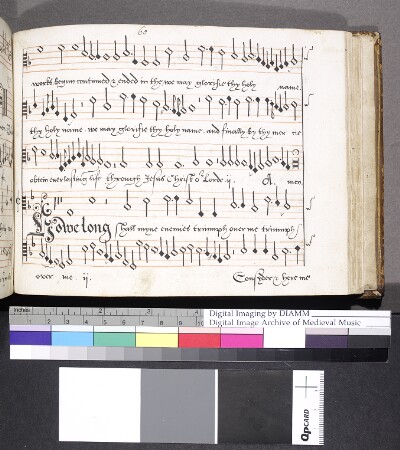 60
works begun continued & ended in thee we may glorifie thy holy name.
thy holy name. we may glorifie thy holy name. and finally by thy mer cie
obtein everlasting life through Jesus Christ or Lorde ij. A men
Howe long shall myne enemies triumph over me triumph
over me ij. Consyder & here me
1 2 3
Digital Imaging by DIAMM
Digital Image Archive of Medieval Music
1 2 3 4 5 6 7 8 9 10
QPCARD